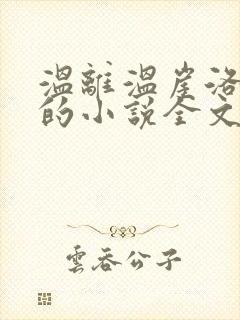 溫離溫崖洛
的小說全文
雲吞公子